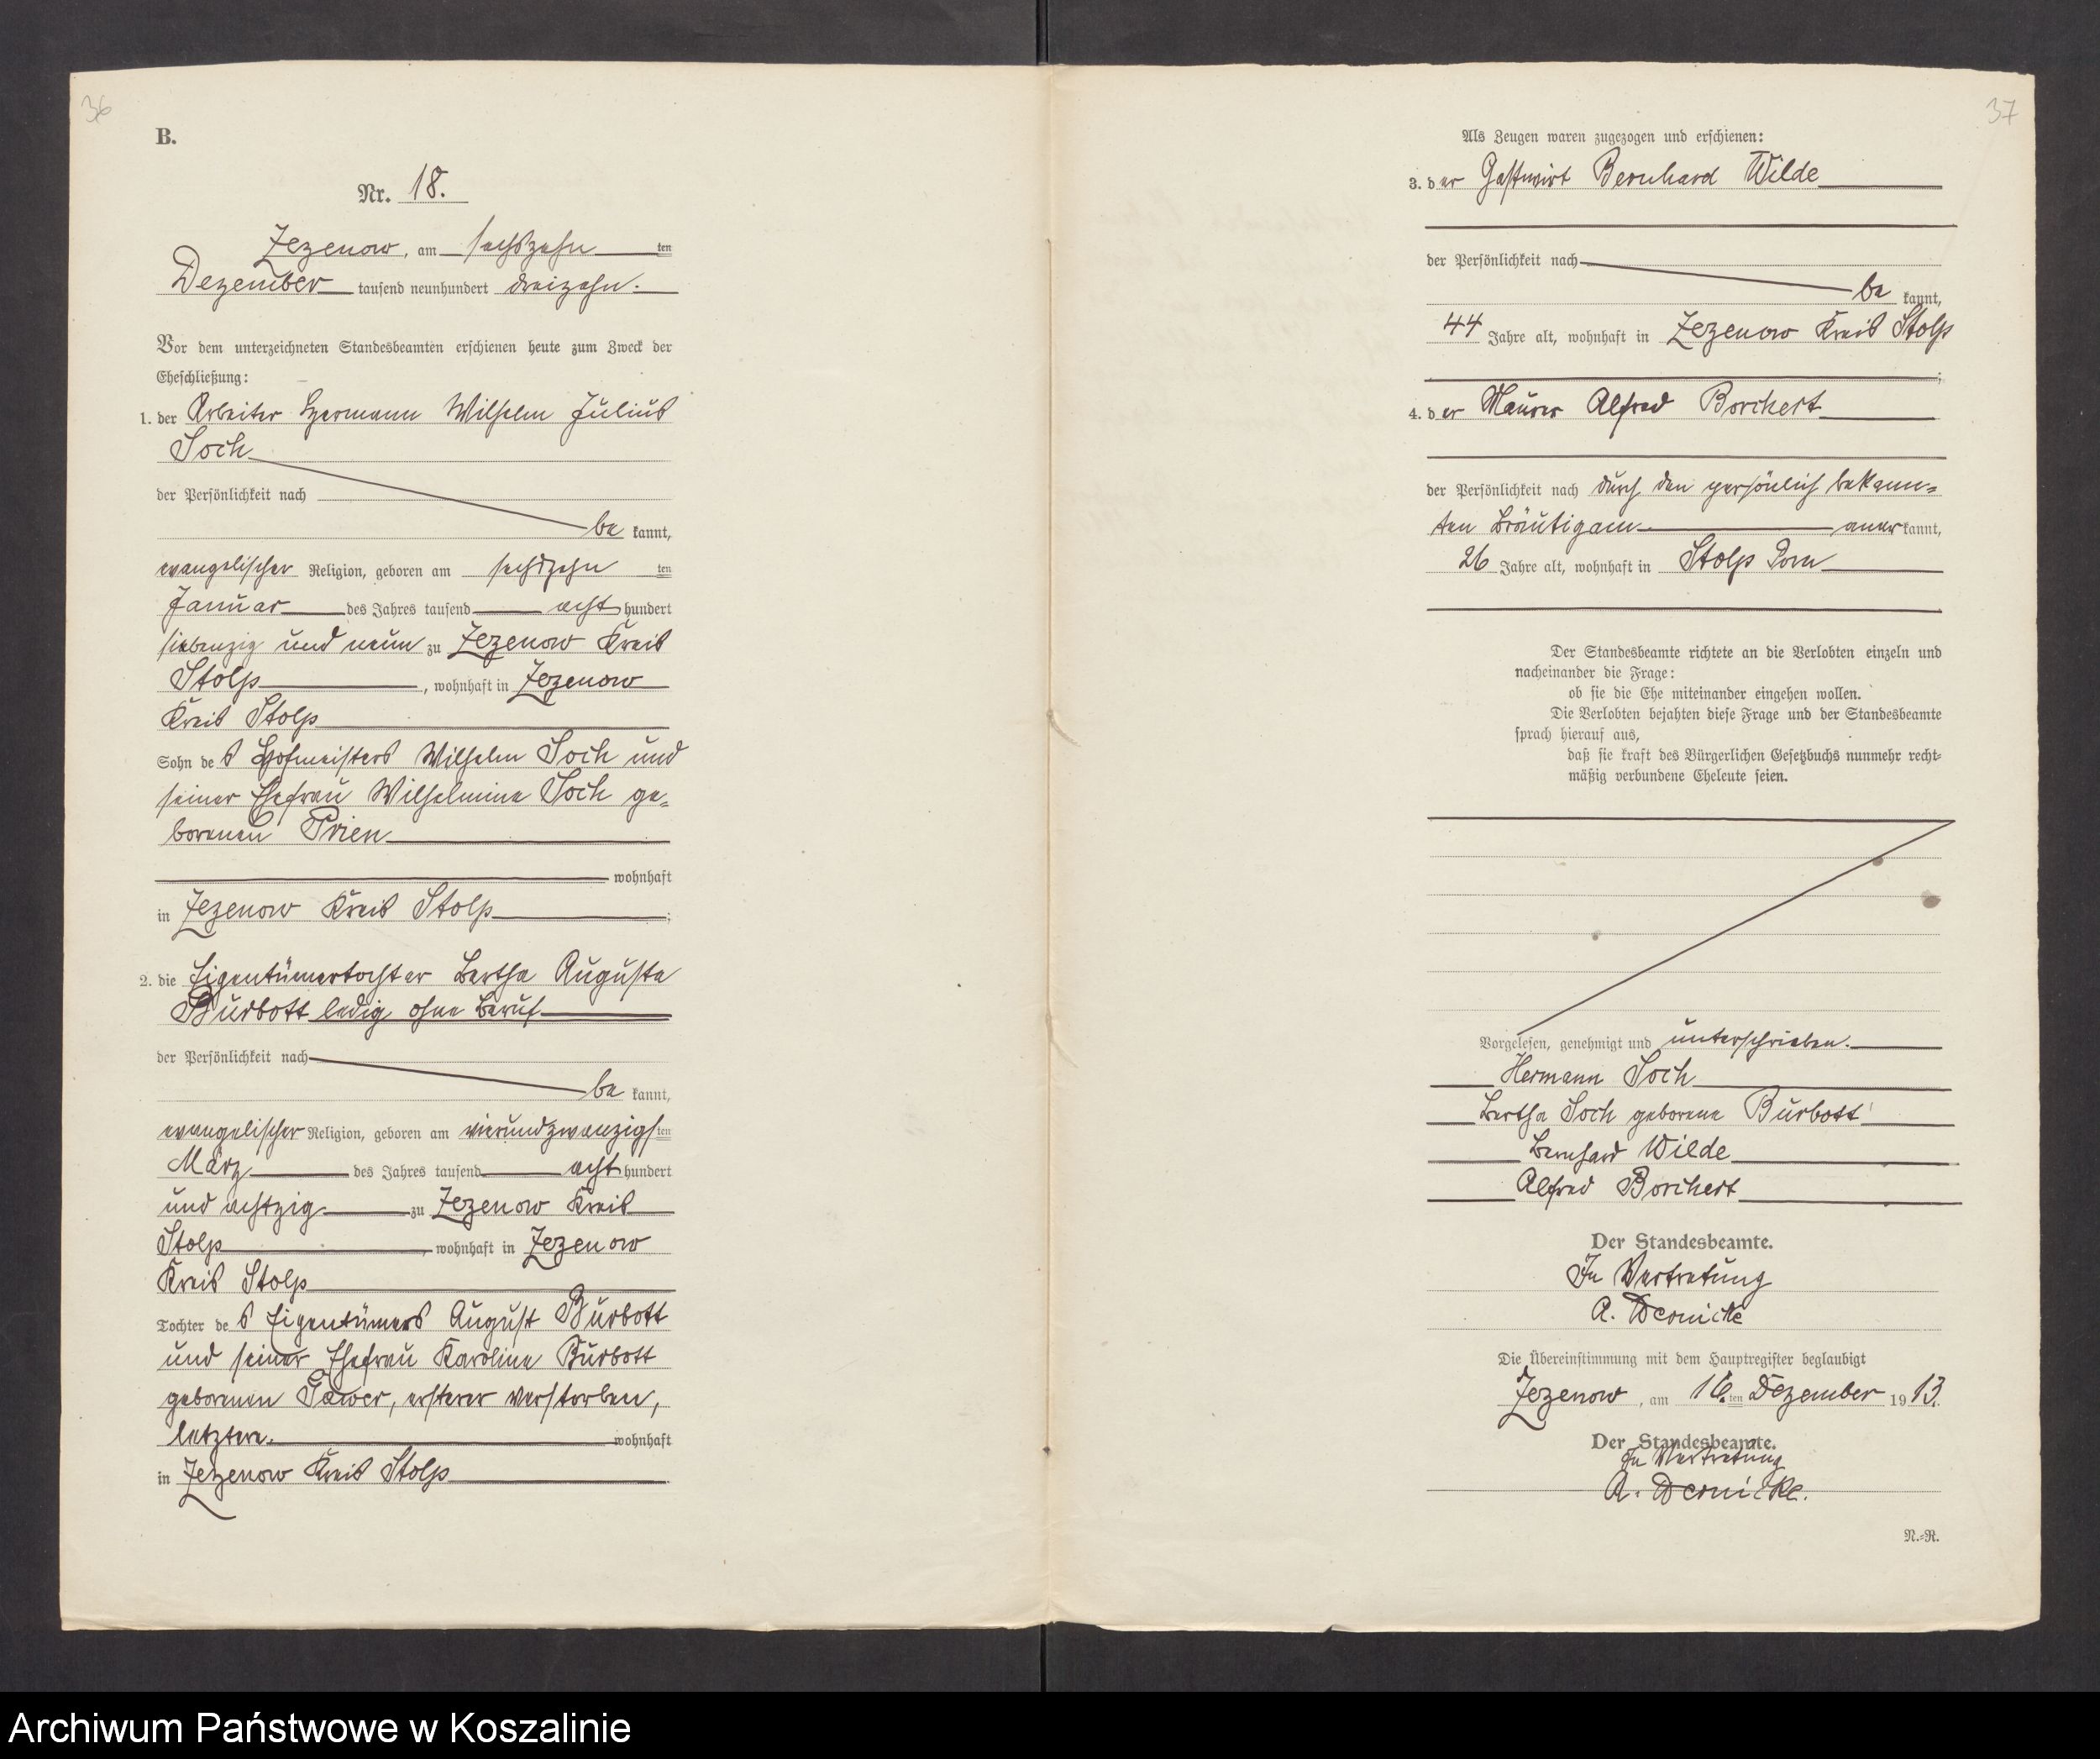 36
B.
Nr. 18.
Zezenow, am sechszehn ten
Dezember tausend neunhundert dreizehn.
Vor dem unterzeichneten Standesbeamten erschienen heute zum Zweck der
Eheschließung:
1. der Arbeiter Hermann Wilhelm Julius
Soch
der Persönlichkeit nach
be kannt,
evangelischer Religion, geboren am sechszehn ten
Januar des Jahres tausend acht hundert
siebenzig und neun zu Zezenow Kreis
Stolp, wohnhaft in Zezenow
Kreis Stolp
Sohn des Hofmeisters Wilhelm Soch und
seiner Ehefrau Wilhelmine Soch ge-
borenen Prien
wohnhaft
in Zezenow Kreis Stolp;
2. die Eigentümertochter Bertha Auguste
Burbott ledig ohne Beruf
der Persönlichkeit nach
be kannt,
evangelischer Religion, geboren am vierundzwanzigsten
März des Jahres tausend acht hundert
und achtzig zu Zezenow Kreis
Stolp, wohnhaft in Zezenow
Kreis Stolp
Tochter des Eigentümers August Burbott
und seiner Ehefrau Karoline Burbott
geborenen, ersterer verstorben,
letztere. wohnhaft
in Zezenow Kreis Stolp.
37
Als Zeugen waren zugezogen und erschienen:
3. der Gastwirt Bernhard Wilde
der Persönlichkeit nach
be kannt,
44 Jahre alt, wohnhaft in Zezenow Kreis Stolp
;
4. der Maurer Alfred Borchert
der Persönlichkeit nach durch den persönlich bekann=
ten Bräutigam anerkannt,
26 Jahre alt, wohnhaft in Stolp Pom
Der Standesbeamte richtete an die Verlobten einzeln und
nacheinander die Frage:
ob sie die Ehe miteinander eingehen wollen.
Die Verlobten bejahten diese Frage und der Standesbeamte
sprach hierauf aus,
daß sie kraft des Bürgerlichen Gesetzbuchs nunmehr recht=
mäßig verbundene Eheleute seien.
Vorgelesen, genehmigt und unterschrieben.
Hermann Soch
Bertha Soch geborene Burbott
Bernhard Wilde
Alfred Borchert
Der Standesbeamte.
In Vertretung
A. Dernicke
Die Übereinstimmung mit dem Hauptregister beglaubigt
Zezenow, am 16. ten Dezember 1913.
Der Standesbeamte.
In Vertretung
A. Dernicke.
N.=R.
Archiwum Państwowe w Koszalinie